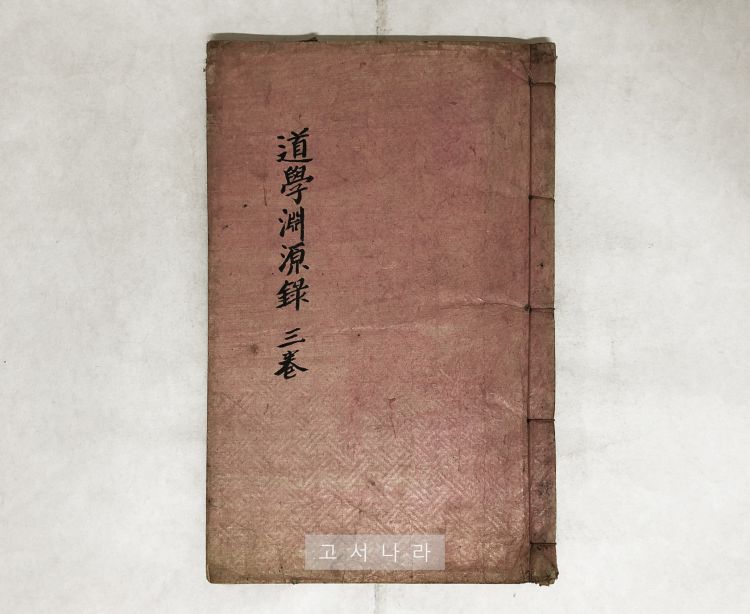 道學淵源錄 三卷
고서나라